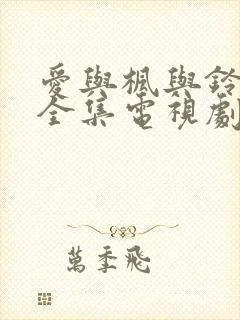 愛與楓與鈴
全集電視劇
萬季飛